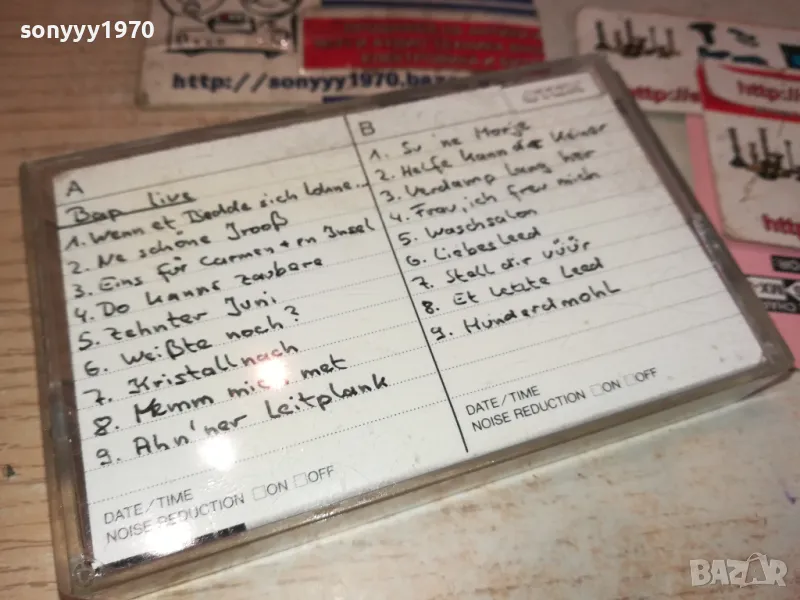 sonyyy1970
http://sonyyy1970.baz
http
http
A
Bap live
1. Wenn et Bedde sich lohne...
2. Ne schöne Jrooß
3. Eins für Carmen + en Insel
4. Do kanns zaubere
5. Zehnter Juni
6. Weißte noch?
7. Kristallnach
8. Nemm mich met
9. Ahn'ner Leitplank
DATE/TIME
NOISE REDUCTION □ON □OFF
B
1. Su 'ne Morje
2. Helfe kann dir keiner
3. Verdamp lang her
4. Frau, ich freu mich
5. Waschsalon
6. Liebesleed
7. Stell dir vüür
8. Et letzte Leed
9. Hunderdmohl
DATE/TIME
NOISE REDUCTION □ON □OFF
BAZAR